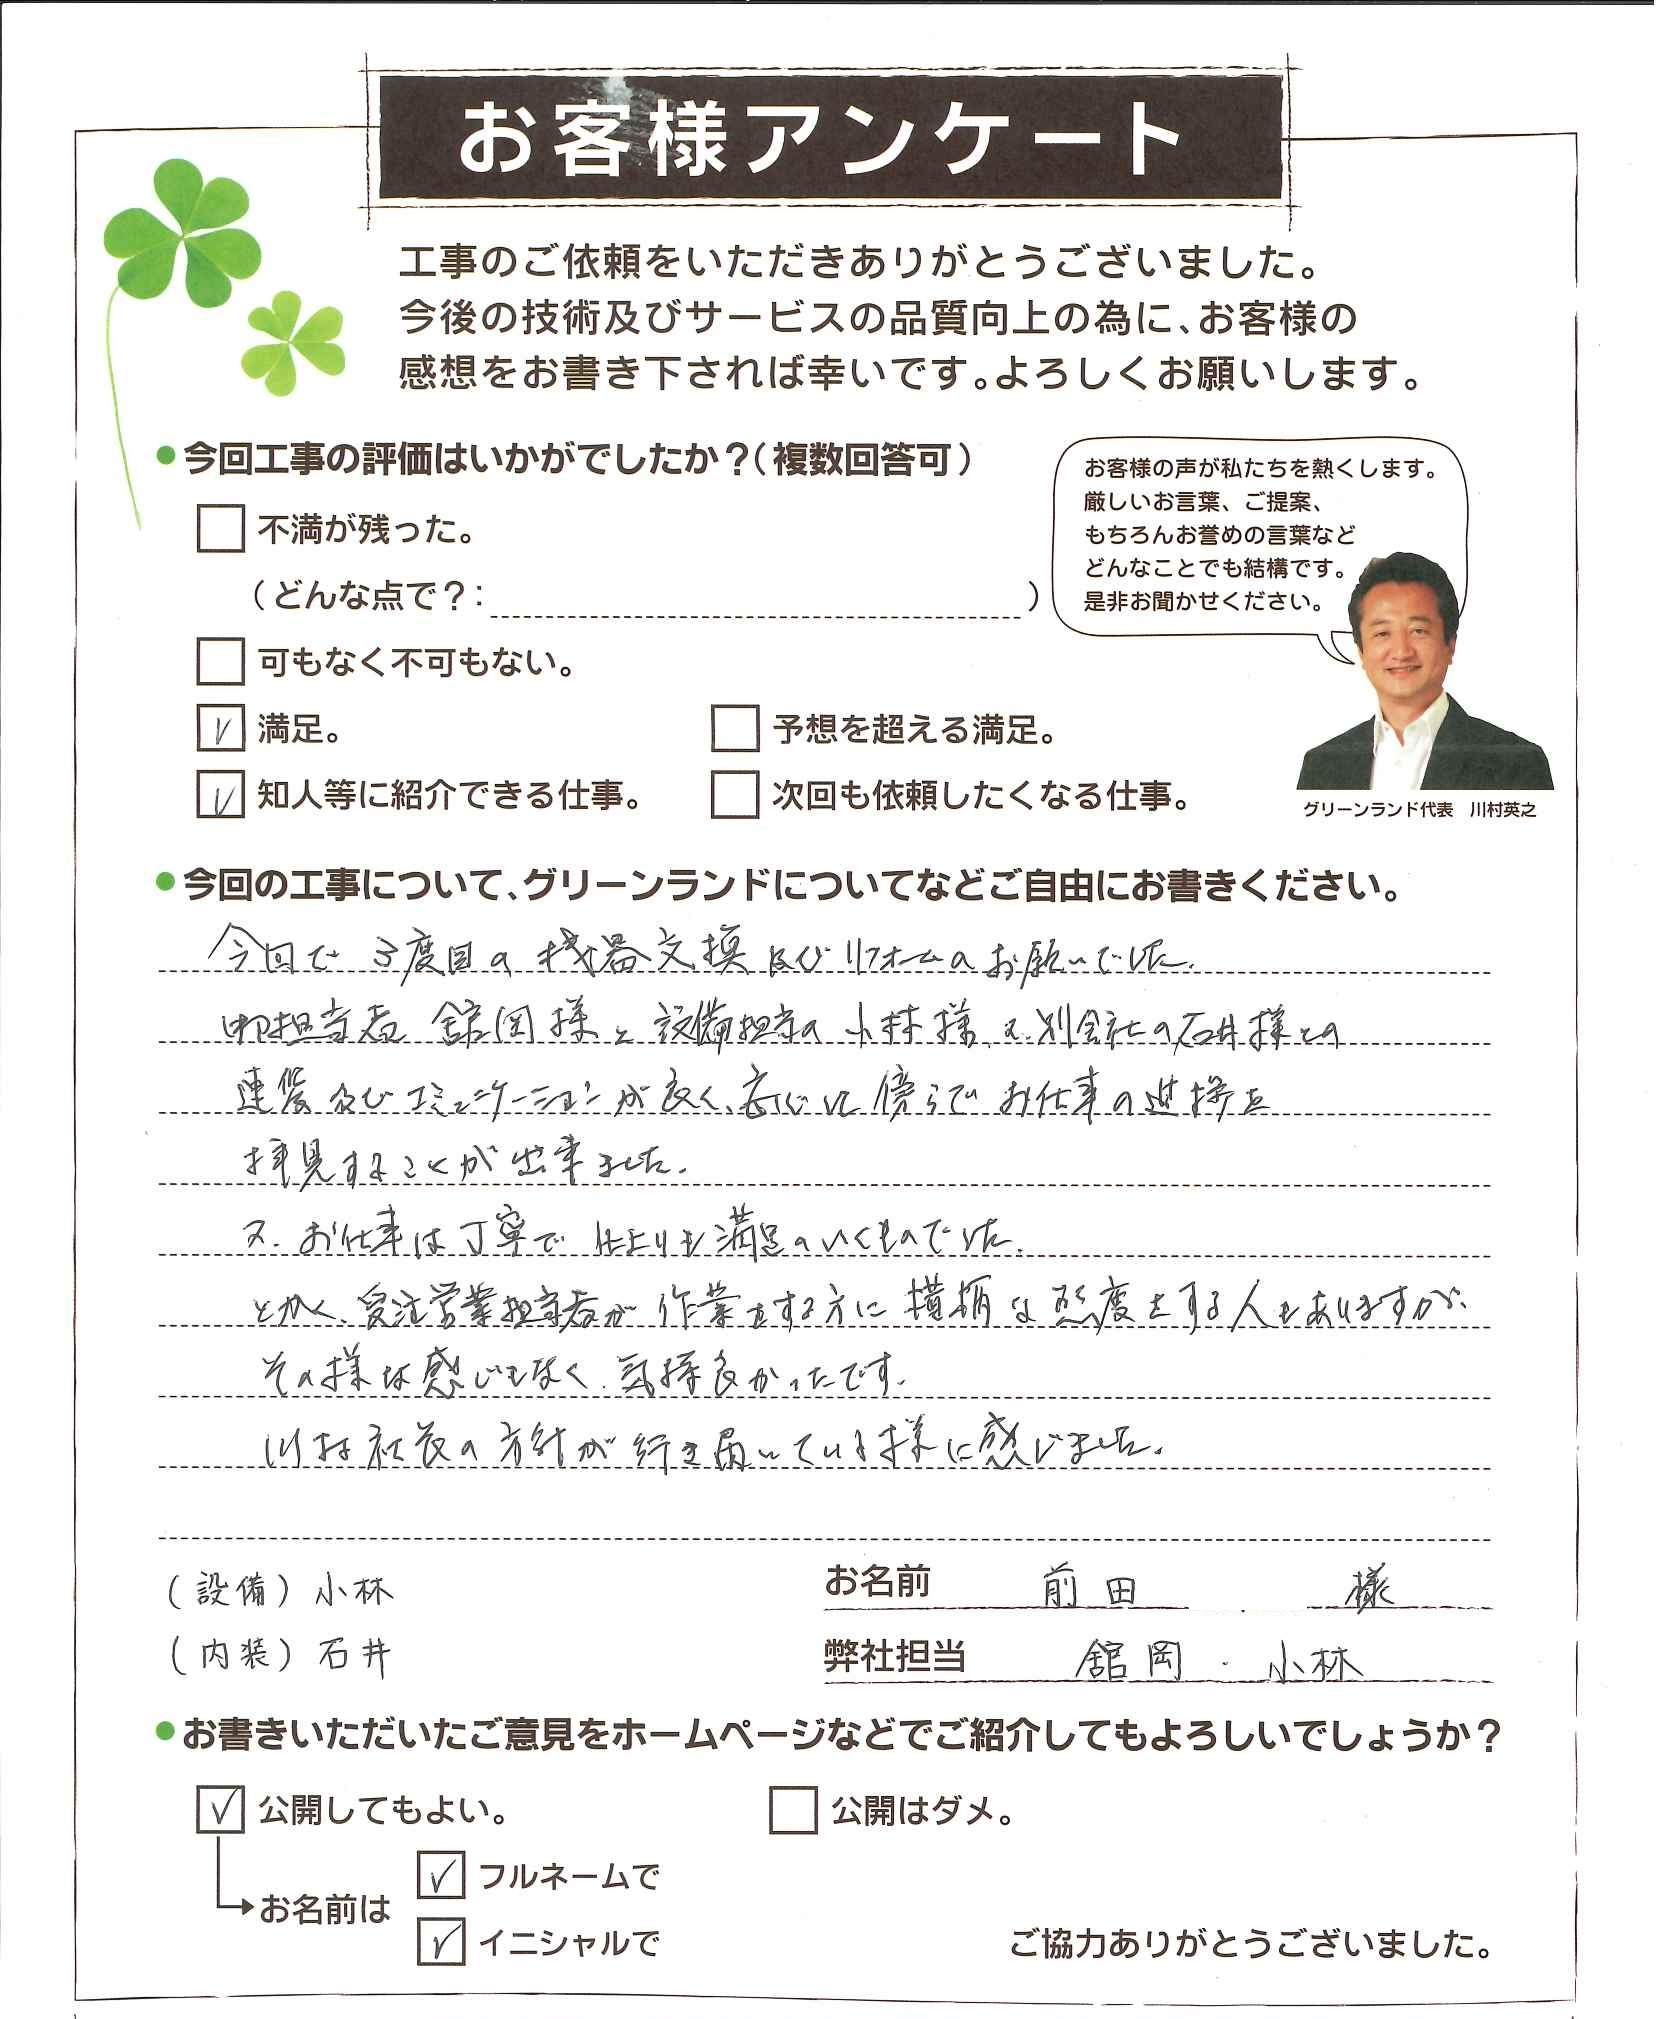 お客様アンケート
工事のご依頼をいただきありがとうございました。
今後の技術及びサービスの品質向上の為に、お客様の
感想をお書き下されば幸いです。よろしくお願いします。
●今回工事の評価はいかがでしたか？(複数回答可)
不満が残った。
(どんな点で？: )
可もなく不可もない。
満足。
予想を超える満足。
知人等に紹介できる仕事。
次回も依頼したくなる仕事。
お客様の声が私たちを熱くします。
厳しいお言葉、ご提案、
もちろんお誉めの言葉など
どんなことでも結構です。
是非お聞かせください。
グリーンランド代表 川村英之
●今回の工事について、グリーンランドについてなどご自由にお書きください。
今回で3度目の機器交換及びリフォームのお願いでした。
御担当者 舘岡様と設備担当の小林様、又、別会社の石井様との
連係及びコミュニケーションが良く、安心して傍らでお仕事の進捗を
拝見することが出来ました。
又、お仕事は丁寧で仕上りも満足のいくものでした。
とかく、受注営業担当者が作業をする方に横柄な態度をする人もありますが、
その様な感じもなく、気持良かったです。
川村社長の方針が行き届いている様に感じました。
(設備) 小林
(内装) 石井
お名前 前田 様
弊社担当 舘岡・小林
●お書きいただいたご意見をホームページなどでご紹介してもよろしいでしょうか？
公開してもよい。
公開はダメ。
お名前は
フルネームで
イニシャルで
ご協力ありがとうございました。